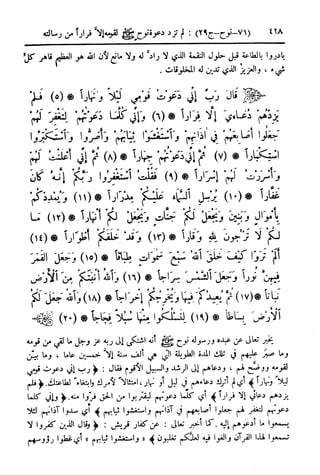 ٤٢٨ (٧١-نوح-ج٢٩): لم تزد دعوة نوح ﷺ لقومه إلا فراراً من رسالته
بادروا بالطاعة قبل حلول النقمة الذي لا راد له ولا مانع لأن الله هو العظيم قاهر كل
شيء، والعزيز الذي تدين له المخلوقات.
قَالَ رَبِّ إِنِّي دَعَوْتُ قَوْمِي لَيْلًا وَنَهَاراً * (٥) فَلَمْ
يَزِدْهُمْ دُعَاءِي إِلَّا فِرَاراً * (٦) وَإِنِّي كُلَّمَا دَعَوْتُهُمْ لِتَغْفِرَ لَهُمْ
جَعَلُوا أَصَابِعَهُمْ فِي آذَانِهِمْ وَاسْتَغْشَوْا ثِيَابَهُمْ وَأَصَرُّوا وَاسْتَكْبَرُوا
اسْتِكْبَاراً * (٧) ثُمَّ إِنِّي دَعَوْتُهُمْ جِهَاراً * (٨) ثُمَّ إِنِّي أَعْلَنْتُ لَهُمْ
وَأَسْرَرْتُ لَهُمْ إِسْرَاراً * (٩) فَقُلْتُ اسْتَغْفِرُوا رَبَّكُمْ إِنَّهُ كَانَ
غَفَّاراً * (١٠) يُرْسِلِ السَّمَاءَ عَلَيْكُمْ مِدْرَاراً * (١١) وَيُمْدِدْكُمْ
بِأَمْوَالٍ وَبَنِينَ وَيَجْعَلْ لَكُمْ جَنَّاتٍ وَيَجْعَلْ لَكُمْ أَنْهَاراً * (١٢) مَا
لَكُمْ لَا تَرْجُونَ لِلَّهِ وَقَاراً * (١٣) وَقَدْ خَلَقَكُمْ أَطْوَاراً * (١٤)
أَلَمْ تَرَوْا كَيْفَ خَلَقَ اللَّهُ سَبْعَ سَمَوَاتٍ طِبَاقاً * (١٥) وَجَعَلَ الْقَمَرَ
فِيهِنَّ نُوراً وَجَعَلَ الشَّمْسَ سِرَاجاً * (١٦) وَاللَّهُ أَنْبَتَكُمْ مِنَ الْأَرْضِ
نَبَاتاً * (١٧) ثُمَّ يُعِيدُكُمْ فِيهَا وَيُخْرِجُكُمْ إِخْرَاجاً * (١٨) وَاللَّهُ جَعَلَ لَكُمُ
الْأَرْضَ بِسَاطاً * (١٩) لِتَسْلُكُوا مِنْهَا سُبُلًا فِجَاجاً * (٢٠)
يخبر تعالى عن عبده ورسوله نوح ﷺ أنه اشتكى إلى ربه عز وجل ما لقي من قومه
وما صبر عليهم في تلك المدة الطويلة التي هي ألف سنة إلا خمسين عاما، وما بيّن
لقومه ووضّح لهم، ودعاهم إلى الرشد والسبيل الأقوم فقال: * رب إني دعوت قومي
ليلاً ونهاراً * أي لم أترك دعاءهم في ليل أو نهار، امتثالاً لأمرك وابتغاءً لطاعتك، * فلم
يزدهم دعائي إلا فراراً * أي كلما دعوتهم ليقتربوا من الحق فرّوا منه. * وإني كلما
دعوتهم لتغفر لهم جعلوا أصابعهم في آذانهم واستغشوا ثيابهم * أي سدوا آذانهم لئلا
يسمعوا ما أدعوهم إليه. كما أخبر تعالى: عن كفار قريش: * وقال الذين كفروا لا
تسمعوا لهذا القرآن والغوا فيه لعلكم تغلبون * * واستغشوا ثيابهم * أي غطوا رؤوسهم